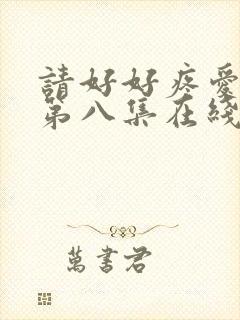 請好好疼愛
第八集在綫
萬書君